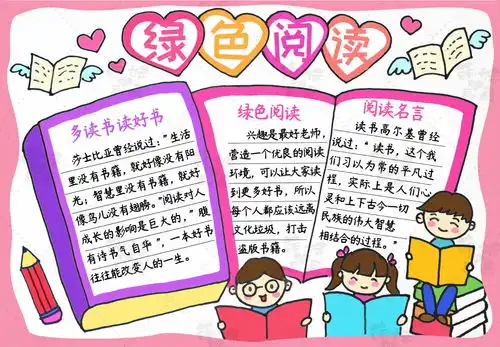 绿色阅读
多读书读好书
莎士比亚曾经说过："生活
里没有书籍，就好像没有阳
光；智慧里没有书籍，就好
像鸟儿没有翅膀。"阅读对人
成长的影响是巨大的，"腹
有诗书气自华"，一本好书
往往能改变人的一生。
绿色阅读
兴趣是最好老师，
营造一个优良的阅读
环境，可以让大家读
到更多好书，所以
每个人都应该远离
文化垃圾，打击
盗版书籍。
阅读名言
读书高尔基曾经
说过："读书，这个我
们习以为常的平凡过
程，实际上是人们心
灵和上下古今一切
民族的伟大智慧
相结合的过程。"